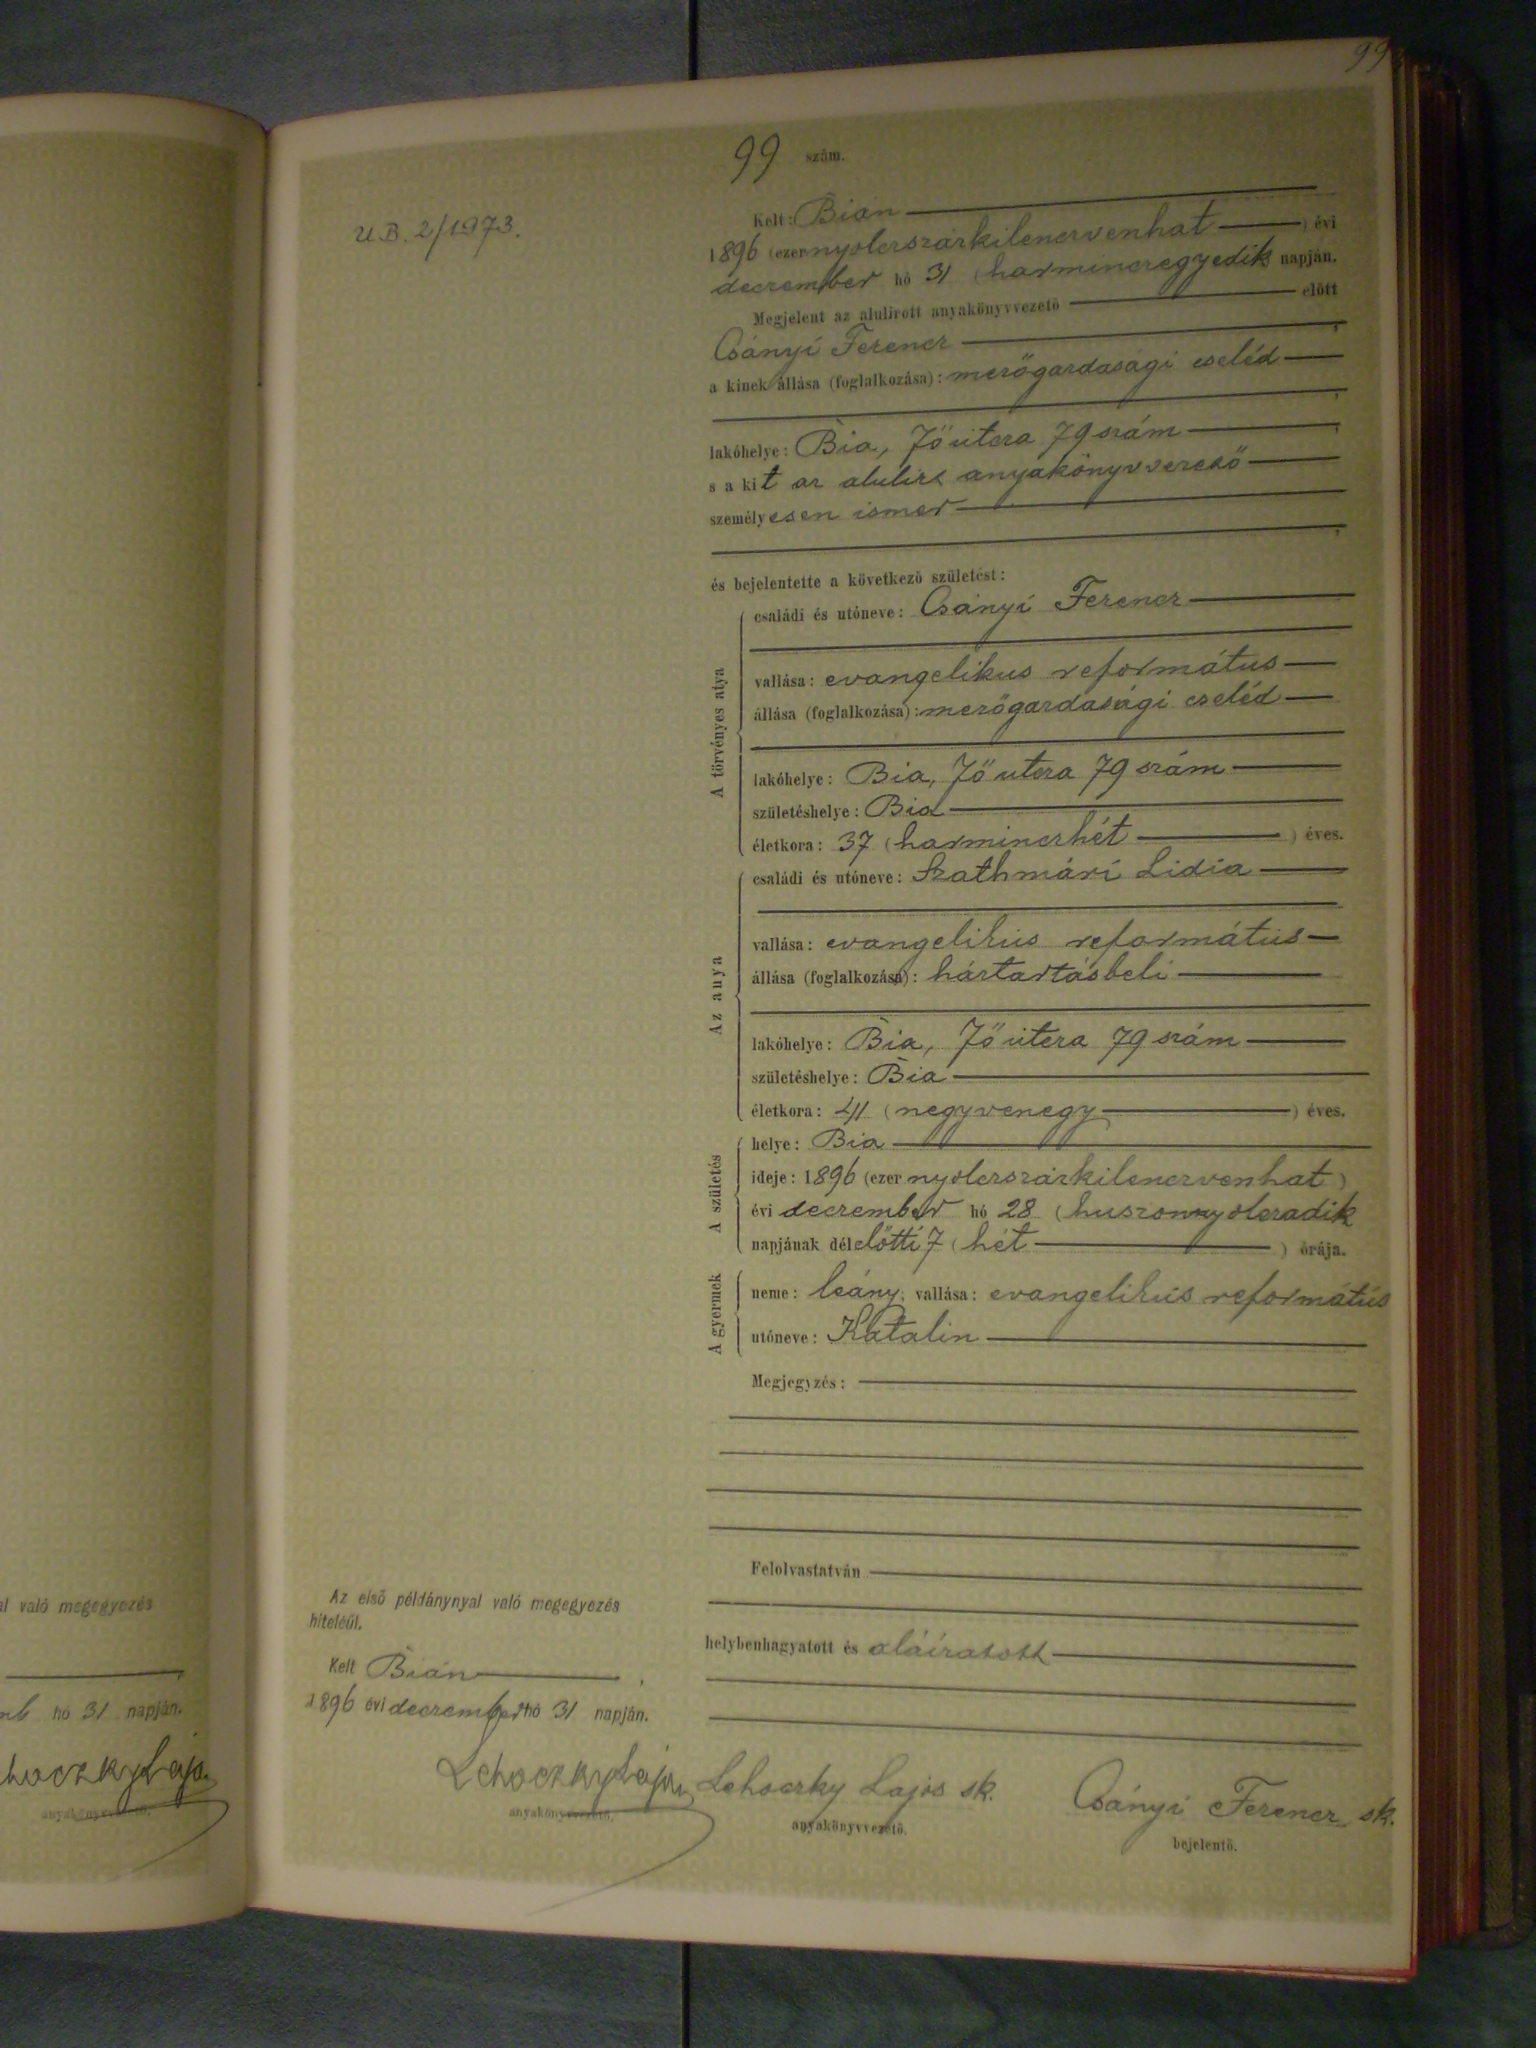 99
99 szám.
U.B. 2/1973.
Kelt: Bián
1896 (ezernyolczszázkilenczvenhat) évi
deczember hó 31 (harminczegyedik) napján.
Megjelent az alulirott anyakönyvvezető előtt
Csányi Ferencz,
a kinek állása (foglalkozása): mezőgazdasági cseléd
,
lakóhelye: Bia, Fő utcza 79 szám,
s a kit az alulirt anyakönyvvezető
személyesen ismer
,
és bejelentette a következő születést:
A törvényes atya
családi és utóneve: Csányi Ferencz
vallása: evangelikus református
állása (foglalkozása): mezőgazdasági cseléd
lakóhelye: Bia, Fő utcza 79 szám
születéshelye: Bia
életkora: 37 (harminczhét) éves.
Az anya
családi és utóneve: Szathmári Lidia
vallása: evangelikus református
állása (foglalkozása): háztartásbeli
lakóhelye: Bia, Fő utcza 79 szám
születéshelye: Bia
életkora: 41 (negyvenegy) éves.
A születés
helye: Bia
ideje: 1896 (ezernyolczszázkilenczvenhat)
évi deczember hó 28 (huszonnyolczadik
napjának délelőtti 7 (hét) órája.
A gyermek
neme: leány, vallása: evangelikus református
utóneve: Katalin
Megjegyzés:
Felolvastatván
helybenhagyatott és aláíratott
Az első példánynyal való megegyezés
hiteléül.
Kelt Bián,
1896 évi deczember hó 31 napján.
Lehoczky Lajos
anyakönyvvezető.
Lehoczky Lajos sk.
anyakönyvvezető.
Csányi Ferencz sk.
bejelentő.
al való megegyezés
,
hó 31 napján.
hoczky Lajos
anyakönyvvezető.